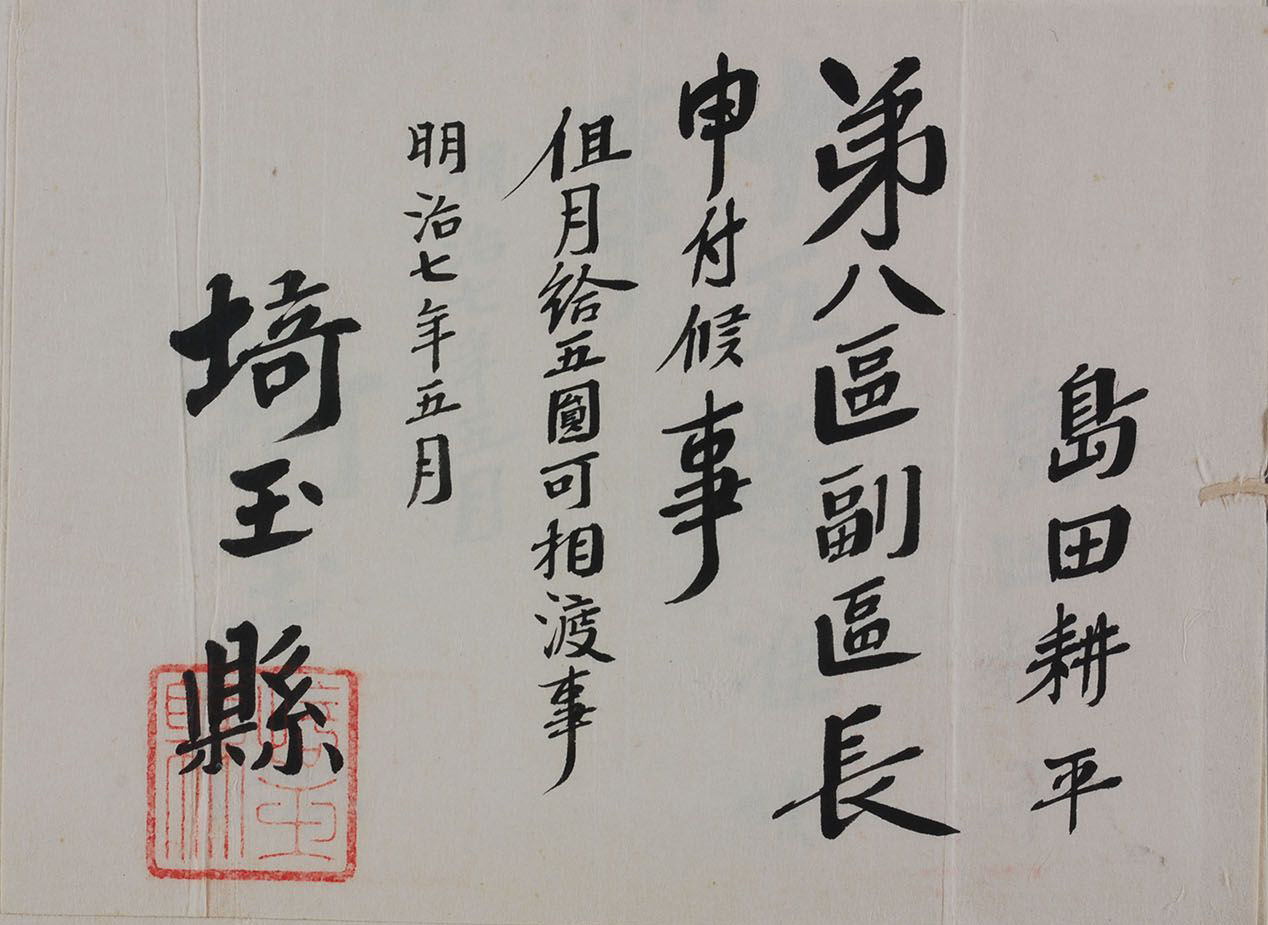 島田耕平
第八區副區長
申付候事
但月給五圓可相渡事
明治七年五月
埼玉縣
埼玉縣